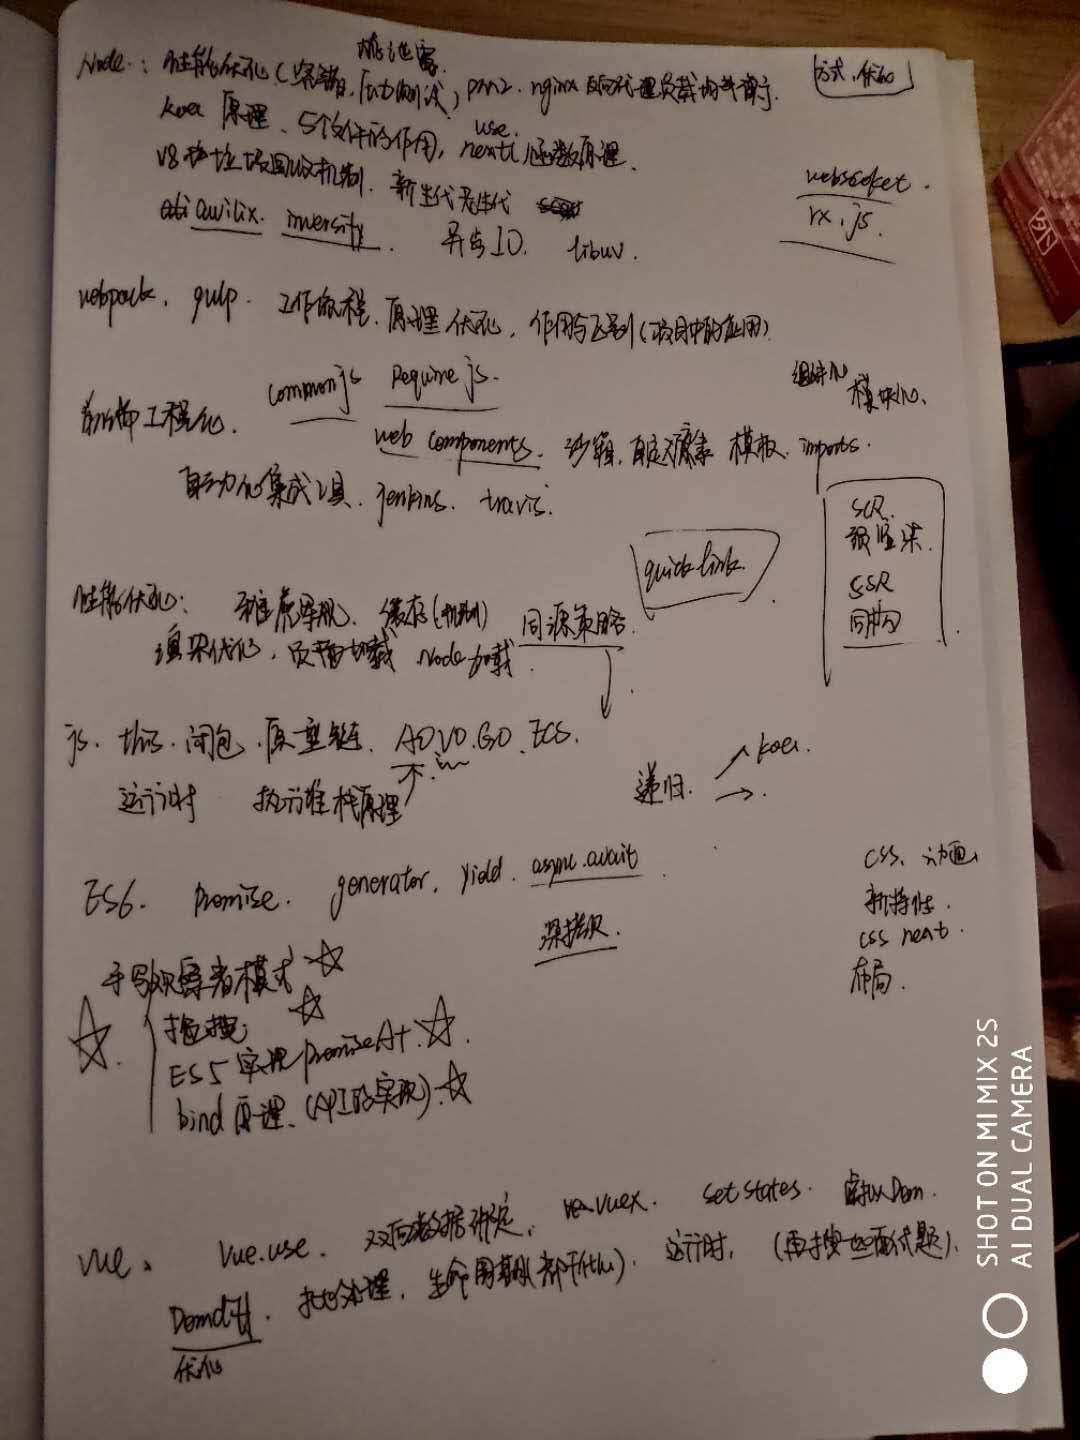 内存泄露
Node: 性能优化(容错,压力测试) pm2. nginx 反向代理负载均衡 方式,优化
koa 原理、5个文件的作用, use. next()函数原理.
V8 垃圾回收机制. 新生代老生代 websocket.
awilix. inversify. 异步IO. libuv. rx.js.
webpack, gulp. 工作流程, 原理优化, 作用与区别(项目中的应用)
commonjs Require js. 组件化 模块化.
前端工程化. web components. 沙箱, 自定义元素 模板 imports.
自动化集成工具. jenkins. travis.
SCR.
预渲染.
SSR
同构
quick link.
性能优化: 雅虎军规. 缓存(机制) 同源策略.
渲染优化, 页面加载 Node加载.
js. this. 闭包. 原型链. AO VO. GO. ECS.
运行时 执行堆栈原理 递归. koa.
ES6. Promise. generator. yield. async.await
css. 动画
新特性.
css next.
布局.
深拷贝.
手写观察者模式
ES5实现promiseA+.
bind 原理. (API的实现).
vue. Vue.use. 双向数据绑定, vuex. setstates. 虚拟Dom.
Domdiff. 批处理, 生命周期(都干什么). 运行时, (再搜一些面试题).
优化
SHOT ON MI MIX 2S
AI DUAL CAMERA